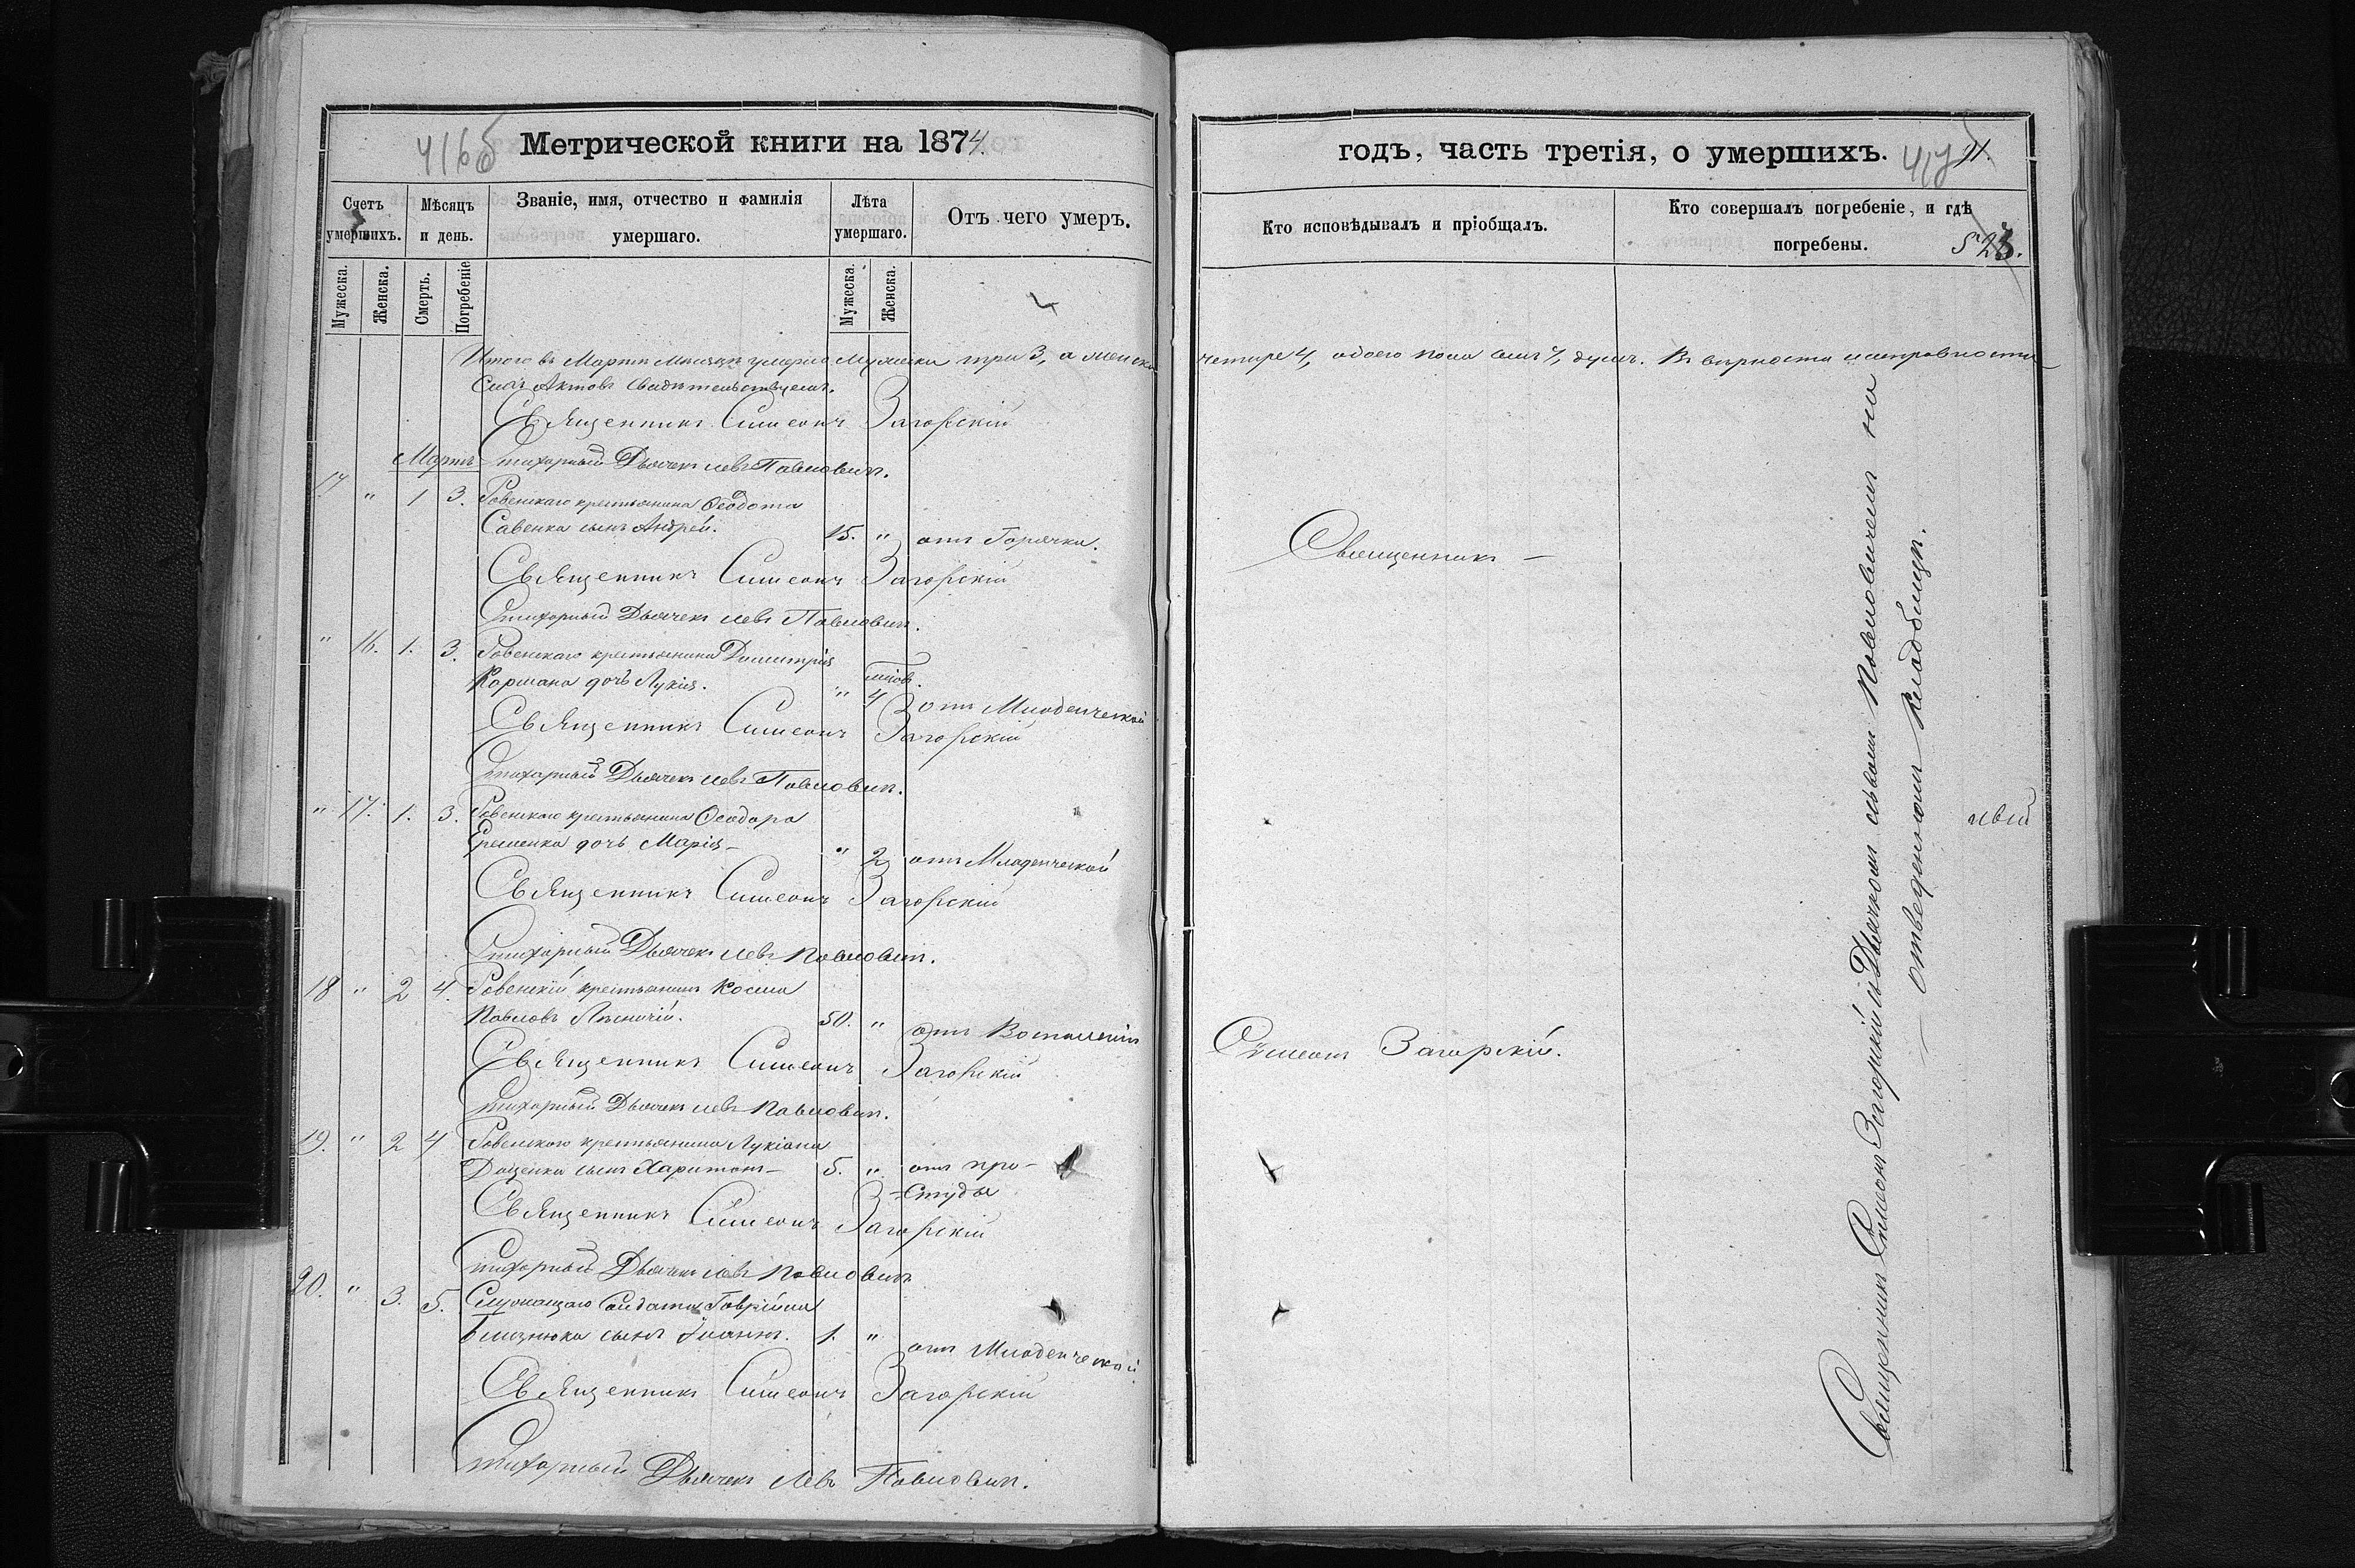 Метрической книги на 1874.
416б
Счетъ умершихъ.
Мѣсяцъ и день.
Званіе, имя, отчество и фамилія умершаго.
Лѣта умершаго.
Отъ чего умеръ.
Мужеска. Женска. Смерть. Погребеніе Мужеска. Женска.
Итого въ Мартѣ Мѣсяцѣ умерло Мужеска три 3, а женска
Сихъ Актовъ свидѣтельствуемъ.
Священникъ Симеонъ Загорскій
Мартъ Стихарный Дьячекъ Левъ Павловичъ.
17 " 1 3. Ровенскаго крестьянина Ѳеодота
Савенка сынъ Андрей. 15. " отъ Горячки.
Священникъ Симеонъ Загорскій
Стихарный Дьячекъ Левъ Павловичъ.
" 16. 1. 3. Ровенскаго крестьянина Димитрія
Кормана дочь Лукія. " 4 отъ Младенческой
Священникъ Симеонъ Загорскій
Стихарный Дьячекъ Левъ Павловичъ.
" 17. 1. 3. Ровенскаго крестьянина Ѳеодора
Еременка дочь Марія " 2 отъ Младенческой
Священникъ Симеонъ Загорскій
Стихарный Дьячекъ Левъ Павловичъ.
18 " 2 4. Ровенскій крестьянинъ Косма
Павловъ 50. " отъ Воспаленія
Священникъ Симеонъ Загорскій
Стихарный Дьячекъ Левъ Павловичъ.
19. " 2 4 Ровенскаго крестьянина Лукіана
Доценка сынъ Харитонъ – 5. " отъ про-
-студы
Священникъ Симеонъ Загорскій
Стихарный Дьячекъ Левъ Павловичъ
20. " 3. 5. Служащаго Солдата Гавріила
Близнюка сынъ Іоаннъ. 1. " отъ Младенческой
Священникъ Симеонъ Загорскій
Стихарный Дьячекъ Левъ Павловичъ.
годъ, часть третія, о умершихъ.
Кто исповѣдывалъ и пріобщалъ.
Кто совершалъ погребеніе, и гдѣ погребены.
четыре 4, обоего пола семь 7, душъ. Въ вѣрности и исправности
Священникъ –
Сѵмеонъ Загорскій.
Священникъ Симеонъ Загорскій съ Дьячкомъ Львомъ Павловичемъ на
отведенномъ Кладбищѣ.